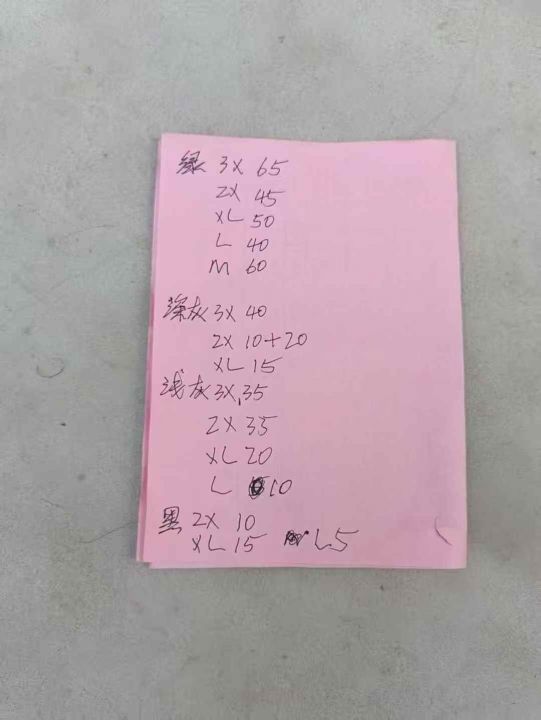 绿 3X 65
2X 45
XL 50
L 40
M 60
深灰 3X 40
2X 10+20
XL 15
浅灰 3X 35
2X 35
XL 20
L 10
黑 2X 10
XL 15 L5